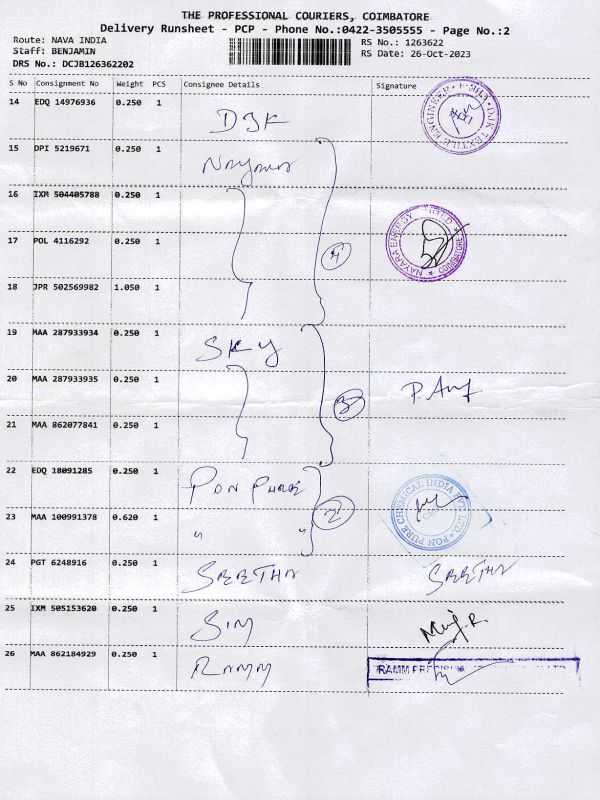 THE PROFESSIONAL COURIERS, COIMBATORE
Delivery Runsheet - PCP - Phone No.:0422-3505555 - Page No.:2
Route: NAVA INDIA
RS No.: 1263622
Staff: BENJAMIN
RS Date: 26-Oct-2023
DRS No.: DCJB126362202
S No Consignment No Weight PCS Consignee Details Signature
14 EDQ 14976936 0.250 1 DJK
15 DPI 5219671 0.250 1 Nayara
16 IXM 504405788 0.250 1
17 POL 4116292 0.250 1 4 NAYARA ENERGY COIMBATORE
18 JPR 502569982 1.050 1
19 MAA 287933934 0.250 1 SKY
20 MAA 287933935 0.250 1 3
21 MAA 862077841 0.250 1
22 EDQ 18091285 0.250 1 PON PURE
23 MAA 100991378 0.620 1 " " 2 PON PURE CHEMICAL INDIA PVT. LTD.
24 PGT 6248916 0.250 1 SEETHA SEETHA
25 IXM 505153620 0.250 1 SIM
26 MAA 862184929 0.250 1 RAMM RAMM